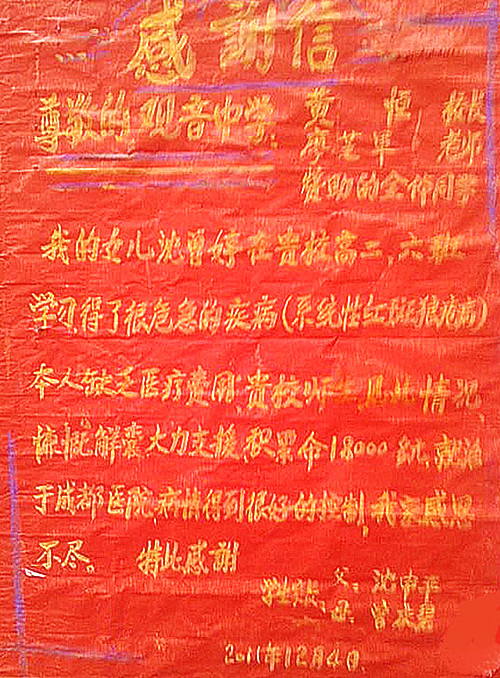 感謝信
尊敬的观音中学:
黄恒校长
廖芝軍老师
赞助的全体同学
我的女儿沈曾婷在贵校高二、六班
学习,得了很危急的疾病(系统性红斑狼疮病)
本人缺乏医疗费用,贵校师生見此情况,
慷慨解囊大力支援,积累命18000元,就治
于成都医院,病情得到很好的控制,我家感恩
不尽。 特此感謝
父:沈申平
母:曾成碧
2011年12月4日